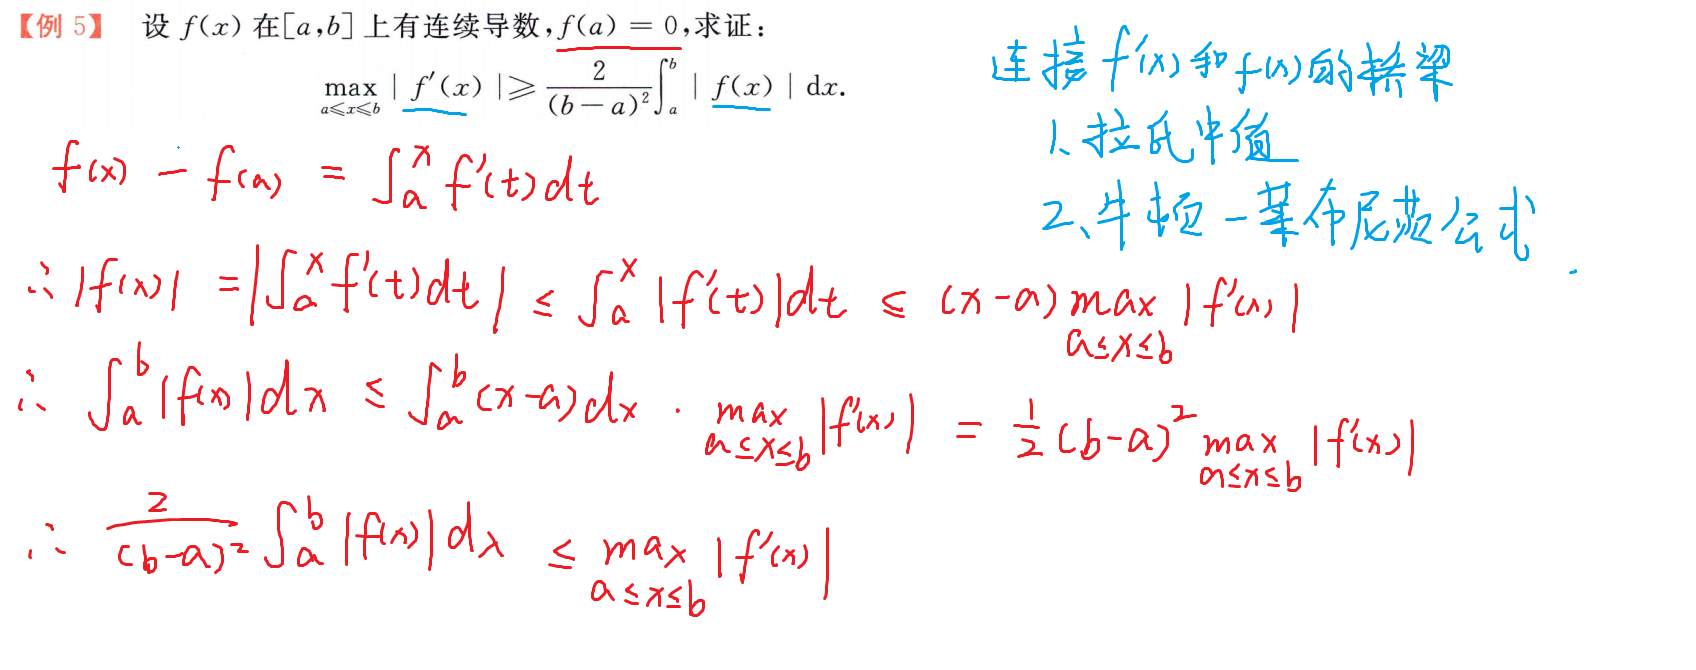 【例 5】 设 f(x) 在[a,b] 上有连续导数,f(a) = 0,求证:
max_{a≤x≤b} | f′(x) | ≥ \frac{2}{(b-a)^2} ∫_a^b | f(x) | dx.
连接 f′(x) 和 f(x) 的桥梁
1、拉氏中值
2、牛顿-莱布尼茨公式
f(x) - f(a) = ∫_a^x f′(t)dt
∴ |f(x)| = |∫_a^x f′(t)dt| ≤ ∫_a^x |f′(t)|dt ≤ (x-a) max_{a≤x≤b} |f′(x)|
∴ ∫_a^b |f(x)|dx ≤ ∫_a^b (x-a)dx · max_{a≤x≤b} |f′(x)| = \frac{1}{2} (b-a)^2 max_{a≤x≤b} |f′(x)|
∴ \frac{2}{(b-a)^2} ∫_a^b |f(x)| dx ≤ max_{a≤x≤b} |f′(x)|